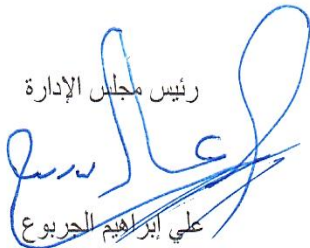 رئيس مجلس الإدارة
علي إبراهيم الجربوع